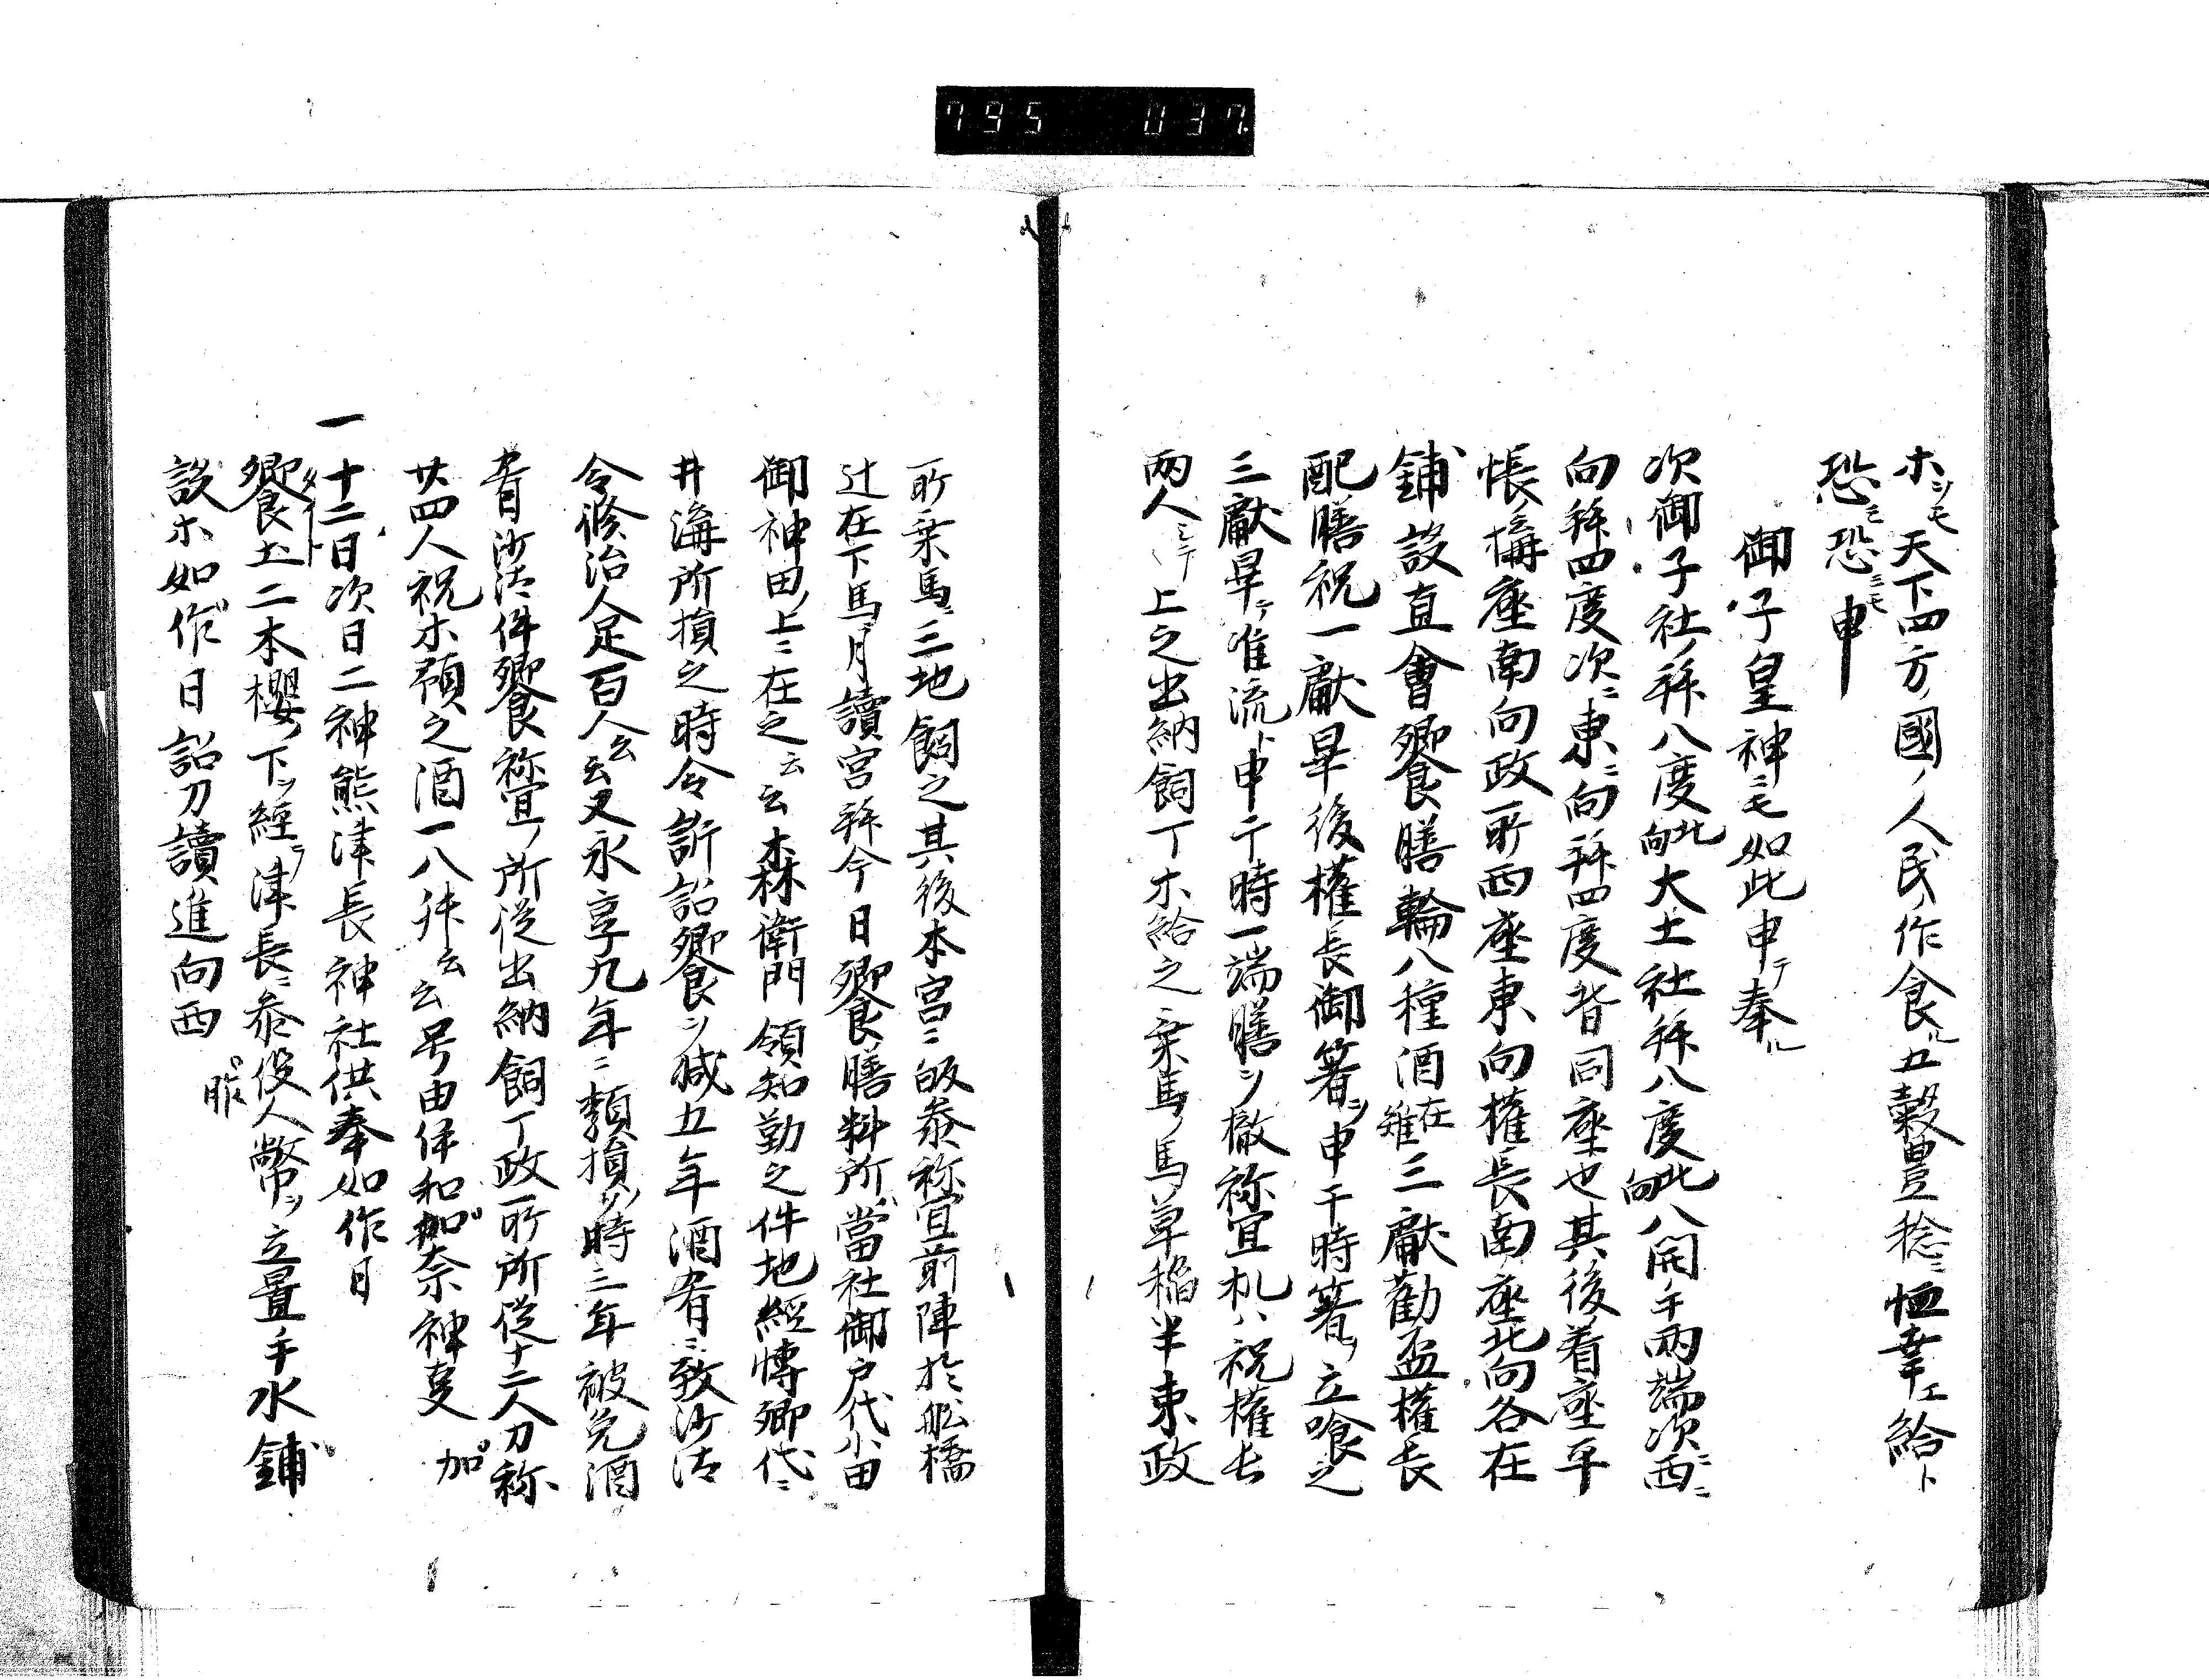 795 037
ホソモ天下四方ノ國ノ人民ノ作食ル五穀豊稔ニ恤幸エ給ト
恐ミモ恐ミモ申
御子皇神ニモ如此申テ奉ル
次御子社ノ拜八度向北大土社拜八度向此八開手兩端次西ニ
向拜四度次ニ東ニ向拜四度皆同座也其後着座平
帳ニ構座南向政所西座東向權長南座北向各在
鋪設直會饗膳輪八種酒在雉三獻勸盃權長
配膳祝一獻畢後權長御箸ヲ申于時箸ヲ立喰之
三獻畢テ准流ト申于時一端膳ヲ撤祢宜机ハ祝權長
兩人シテ上之出納飼丁ホ給之乗馬ノ馬草稲半束政
所乗馬ニ三地飼之其後本宮ニ皈参祢宜前陣於舩橋
辻在下馬月讀宮拜今日饗膳料所ハ當社御戸代小田
御神田ノ上ニ在之云云森衛門領知勤之件地經博卿代ニ
井溝所損之時令訴詔饗ヲ減五年酒肴ニ致沙汰
令修治人足百人云云又永享九年ニ類損ソノ時三年被免酒
肴沙汰件饗祢宜ノ所從出納飼丁政所所從十二人刀祢
廿四人祝ホ預之酒一八舛云云号由伴和加奈神㕝 加
一十二日次日二神熊津長神社供奉如作日
饗土二本櫻ノ下ヲ經テ津長ニ参役人幣ヲ立置手水鋪
設ホ如作日詔刀讀進向西 昨